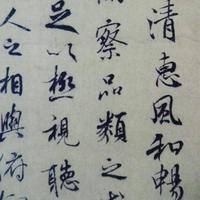 清惠風和暢
察品類之
足以極視聽
人之相與俯